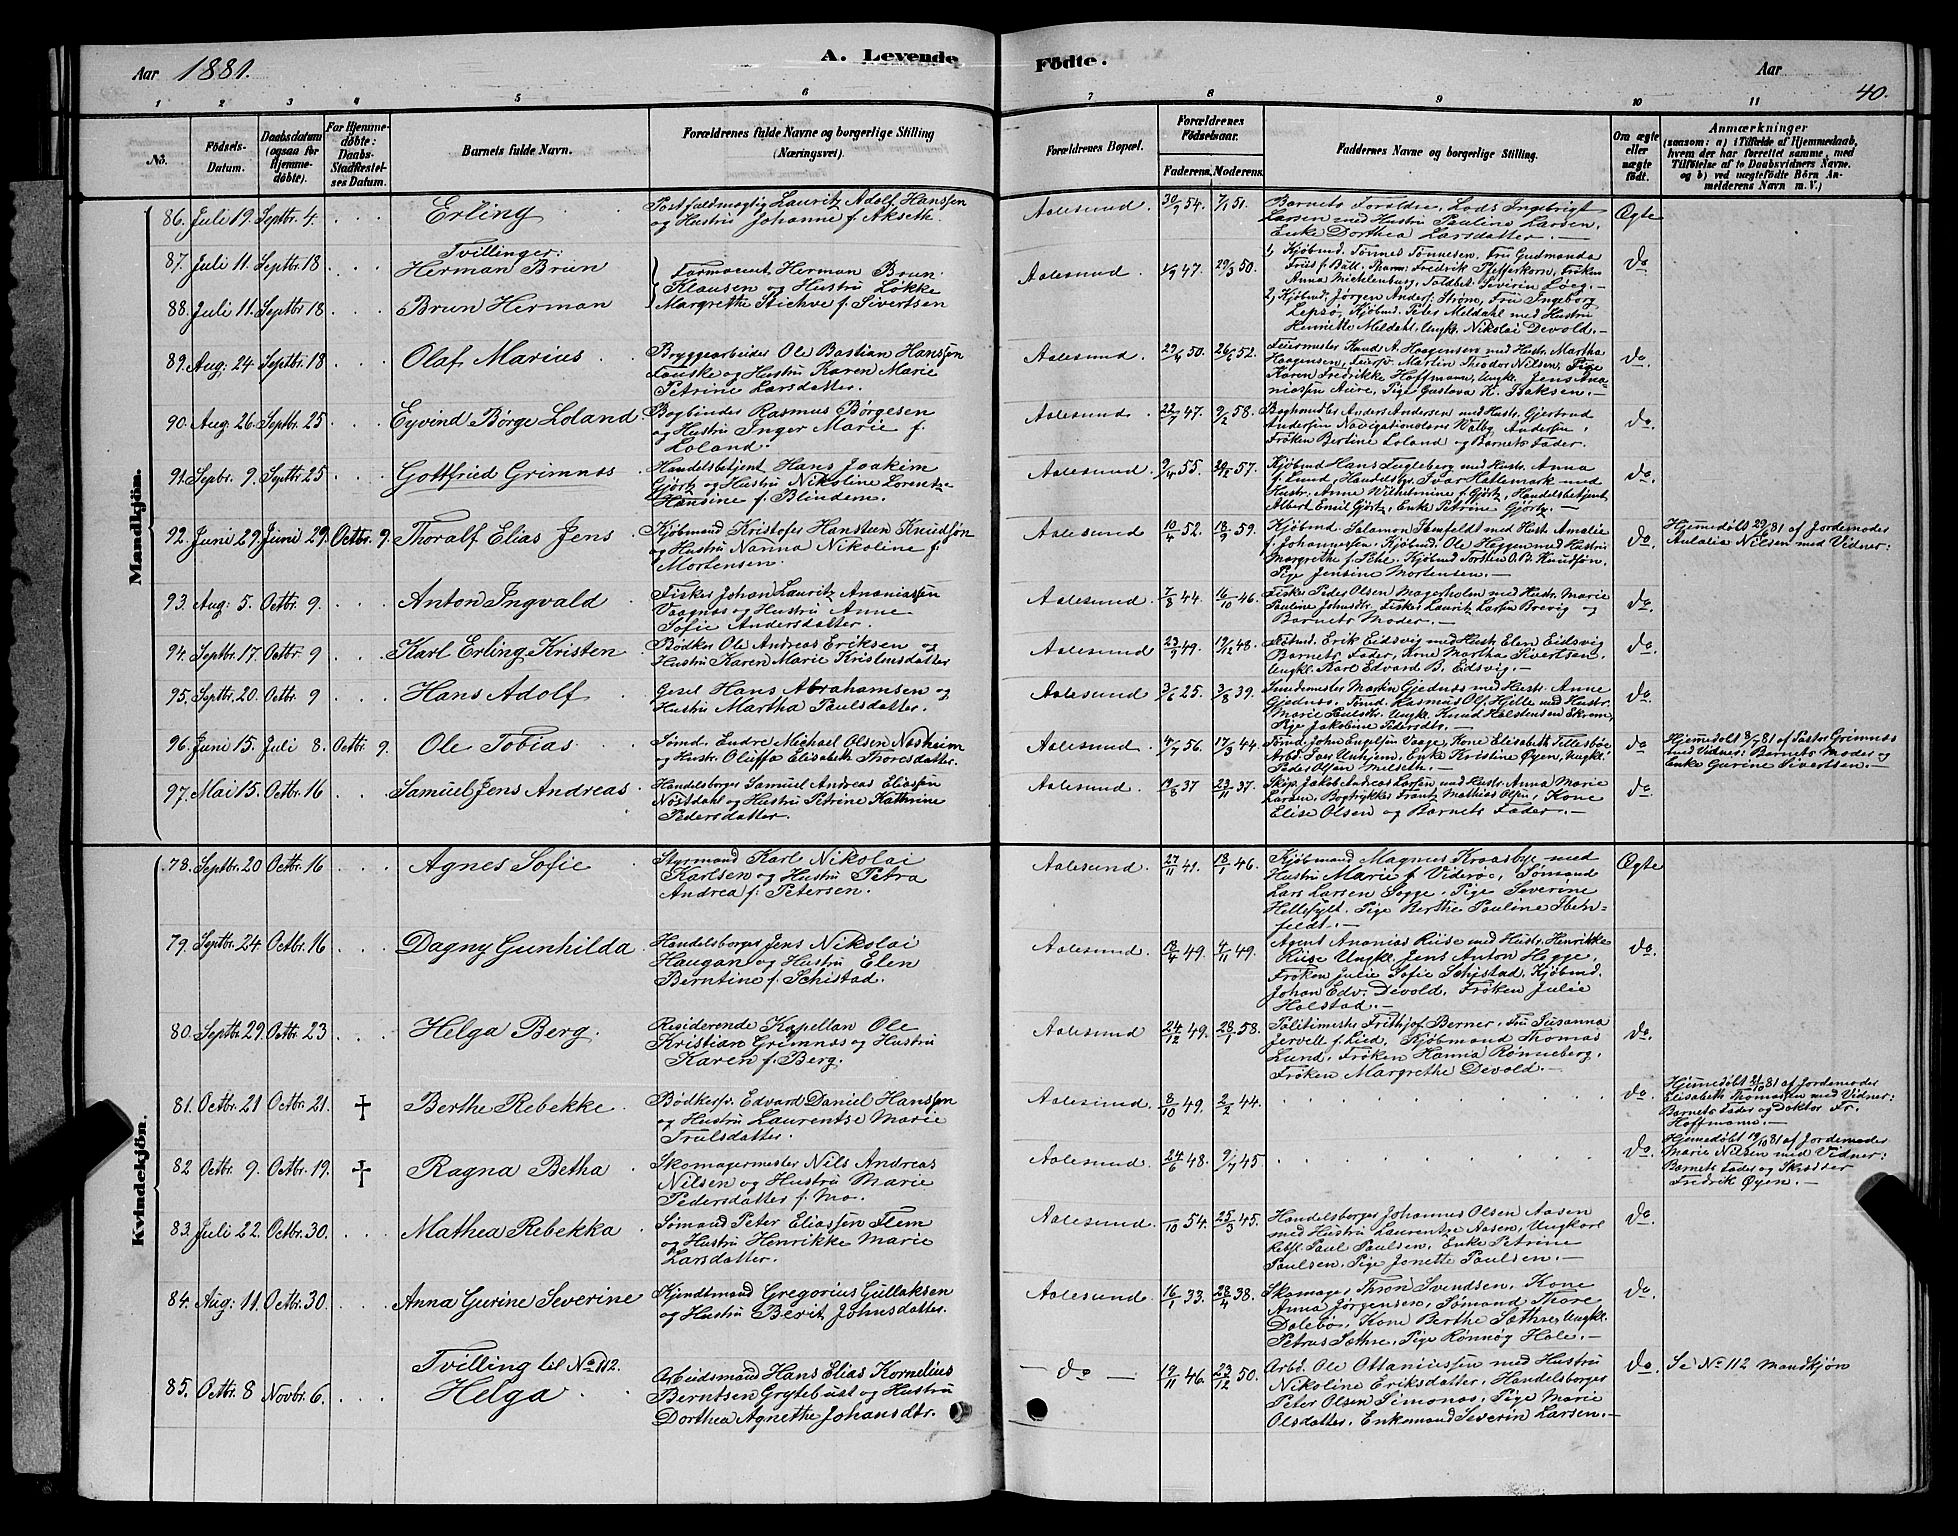 Aar 1881. A. Levende Födte. Aar 40.
1 2 3 4 5 6 7 8 9 10 11
No.
Födsels-Datum.
Daabsdatum (ogsaa for Hjemmedöbte).
For Hjemmedöbte: Daabs-Stadfæstelses Datum.
Barnets fulde Navn.
Forældrenes fulde Navne og borgerlige Stilling (Næringsvei).
Forældrenes Bopæl.
Forældrenes Födselsaar.
Faderens. Moderens.
Faddernes Navne og borgerlige Stilling.
Om ægte eller uægte födt.
Anmærkninger
(saasom: a) i Tilfælde af Hjemmedaab, hvem der har forrettet samme, med Tilföielse af to Daabsvidners Navne, og b) ved uægtefödte Börn Anmelderens Navn m. V.)
Mandkjön.
86. Juli 19. Septbr. 4. Erling
Postfuldmægtig Lauritz Adolf Hanssen
og Hustru Johanne f. Akseth.
Aalesund 30/9 54. 7/1 51.
Barnets Forældre, Lods Ingebrigt
Larsen med Hustru Pauline Larsen,
Enke Dorthea Larsdatter.
Ægte
Tvillinger:
87. Juli 11. Septbr. 18 Herman Brun
88. Juli 11. Septbr 18 Brun Herman
Farmaceut Herman Brun
Klausen og Hustru Løkke
Margrethe Stichve f. Sivertsen
Aalesund 4/9 47. 29/3 50.
1, Kjøbmd. Tønnes Tønnesen, Fru Gudmunda
Friis f. Bull, Pharm: Fredrik Pfefferkorn, Frøken
Anna Mecklenburg, Toldbet: Severin Loeg.
2, Kjøbmd: Jørgen Anders: Strøm, Fru Ingeborg
Lepsø, Kjøbmd. Peter Meldahl med Hustru
Henriette Meldahl, Ungk. Nikolai Devold.
do
89. Aug. 24 Septbr. 18 Olaf Marius
Bryggearbeider Ole Bastian Hanssen
Fauske og Hustru Karen Marie
Petrine Larsdatter.
Aalesund. 29/6 50. 26/6 52.
Feiermester Knud A. Haagensen med Hustr. Martha
Haagensen, Feiersv. Martin Theodor Nilsen, Pige
Karen Fredrikke Hoffmann, Ungk. Jens Ananiassen
Aure, Pige Gustava K. Baksen.
do.
90. Aug. 26. Septbr. 25 Eyvind Børge Loland.
Bogbinder Rasmus Børgesen
og Hustru Inger Marie f.
Loland.
Aalesund. 22/7 47. 9/2 58.
Boghandler Anders Andersen med Hustr. Gjertrud
Andersen, Navigationslærer Walby Andersen,
Frøken Bertine Loland og Barnets Fader.
do.
91. Septbr. 9. Septbr. 25 Gottfried Grimnæs
Handelsbetjent Hans Joakim
Gjørtz og Hustru Nikoline Lorentze
Hansine f. Blindem.
Aalesund. 9/4 55. 57.
Kjøbmd Hans Fugleberg med Hustr. Anna
f. Lund, Handelsbgr. Ivar Hatlemark med
Hustr. Anne Wilhelmine f. Gjørtz, Handelsbetjent
Albert Emil Gjørtz, Enke Petrine Gjørtz.
do.
92. Juni 29. Juni 29. Octbr. 9. Thoralf Elias Jens
Kjøbmand Kristofer Hansteen Knudsøn
og Hustru Nanna Nikoline f.
Mortensen.
Aalesund 10/4 52. 18/9 59.
Kjøbmd. Salamon Ibenfeldt med Hust. Amalie
f. Johannessen, Kjøbmd. Ole Heggen med Hustru
Margrethe f. Pehe. Kjøbmd Torsten O. B. Knudsøn,
Pige Jensine Mortensen.
do.
Hjemedøbt 29/6 81 af Jordemoder
Aulalia Nilsen med Vidner:
93. Aug. 5. Octbr. 9. Anton Ingvald
Fisker Johan Lauritz Ananiassen
Vaagnæs og Hustru Anne
Sofie Andersdatter.
Aalesund. 7/8 44. 16/10 46.
Fisker Peder Olsen Magerholm med Hustr. Marie
Pauline Johnsdtr. Fisker Lauritz Larsen Brevig og
Barnets Moder.
do.
94. Septbr. 17. Octbr 9 Karl Erling Kristen
Bødker Ole Andreas Eriksen og
Hustru Karen Marie Kristensdatter
Aalesund 23/9 49. 19/12 48.
Erik Eidsvig med Hustr. Elen Eidsvig
Barnets Fader, Kone Martha Sivertsen,
Ungkl. Karl Edvard B. Eidsvig.
do.
95. Septbr. 20. Octbr. 9 Hans Adolf
Gesel Hans Abrahamsen og
Hustru Martha Paulsdatter.
Aalesund 3/6 25. 3/8 39.
Snedermester Martin Gjednæs med Hustr. Anne
Gjednæs, Tømd. Rasmus Ol. Hjelle med Hustr.
Marie Paulsdtr. Ungk. Knud Halstensen Skrom,
Pige Jakobine Pedersdtr.
do.
96. Juni 15. Juli 8. Octbr. 9. Ole Tobias
Sømd. Endre Michael Olsen Næsheim
og Hustr. Oluffa Elisabeth Thoresdatter.
Aalesund 4/7 56. 17/3 44.
Tømd. John Engelsen Vaage, Kone Elisabeth Tellesbøe
Arbd. Iver Unhjem, Enke Kristine Øyen, Ungkl.
Peder Olsen Melseth.
do.
Hjemedøbt 8/7 81 af Pastor Grimnæs
med Vidner: Barnets Moder og
Enke Gurine Sivertsen.
97. Mai 15. Octbr. 16 Samuel Jens Andreas
Handelsborger Samuel Andreas Eliassen
Nøstdahl og Hustru Petrine Kathrine
Pedersdatter.
Aalesund 19/8 37 23/11 37.
Skip. Jakob Andreas Larsen med Hustr. Anna Marie
Larsen, Bogtrykker Frantz Mathias Olsen, Kone
Elise Olsen og Barnets Fader.
do.
Kvindekjön.
78. Septbr. 20 Octbr. 16 Agnes Sofie
Styrmand Karl Nikolai
Karlsen og Hustru Petra
Andrea f. Petersen.
Aalesund. 27/11 41. 18/1 46.
Kjøbmand Magnus Kraasbye med
Hustru Marie f. Viderøe, Sømand
Lars Larsen Segge, Pige Severine
Hellesylt, Pige Berthe Pauline Ibenfeldt.
Ægte
79. Septbr. 24 Octbr. 16 Dagny Gunhilda
Handelsborger Jens Nikolai
Haugan og Hustru Elen
Berntine f. Schistad.
Aalesund. 18/4 49. 4/11 49.
Agent Ananias Riise med Hustr. Henrikke
Riise Ungkl. Jens Anton Hegge,
Frøken Julie Sofie Schistad, Kjøbmd.
Johan Edv. Devold, Frøken Julie
Holstad.
do.
80. Septbr. 29. Octbr. 23 Helga Berg.
Residerende Kapellan Ole
Kristian Grimnæs og Hustru
Karen f. Berg.
Aalesund 24/12 49. 28/1 58.
Politimester Frithjof Berner, Fru Susanna
Jervell f. Lied, Kjøbmand Thomas
Lund, Frøken Hanna Rønneberg,
Frøken Margrethe Devold.
do.
81. Octbr. 21 Octbr. 21. † Berthe Rebekke
Bødkersv. Edvard Daniel Hanssen
og Hustru Laurentse Marie
Trulsdatter.
Aalesund. 8/10 49. 2/2 44.
do.
Hjemedøbt 21/10 81 af Jordemoder
Elisabeth Thomassen med Vidner:
Barnets Fader og Doktor Fr.
Hoffmann.
82 Octbr. 9. Octbr. 19. † Ragna Betha
Skomagermester Nils Andreas
Nilsen og Hustru Marie
Pedersdatter f. Mo.
Aalesund. 24/6 48. 9/7 45.
do.
Hjemedøbt 19/10 81 af Jordemoder
Marie Nilsen med Vidner:
Barnets Fader og Skrædder
Fredrik Øyen.
83. Juli 22. Octbr. 30. Mathea Rebekka
Sømand Peter Eliassen Flem
og Hustru Henrikke Marie
Larsdatter.
Aalesund. /10 54. 25/3 45.
Handelsborger Johannes Olsen Aasen
med Hustru Laurentze Aasen, Ungkarl
Rebsl. Paul Paulsen, Enke Petrine
Paulsen, Pige Jonette Paulsen.
do.
84. Aug: 11. Octbr. 30. Anna Gurine Severine
Kjendtmand Gregorius Gullaksen
og Hustru Berit Johnsdatter.
Aalesund. 16/1 33. 28/4 38.
Skomager Thron Svendsen, Kone
Anna Jørgensen, Sømand Thore
Dalebø, Kone Berthe Sæthre, Ungkl.
Petrus Sæthre, Pige Rønnøg Hole.
do.
Tvilling til No 112.
85. Octbr. 8 Novbr. 6. Helga
Arbeidsmand Hans Elias Kornelius
Berntsen Grytebust og Hustru
Dorthea Agnethe Johansdtr.
do 19/11 46. 23/12 50.
Arbd. Ole Ottaniussen med Hustru
Nikoline Eriksdatter, Handelsborger
Peter Olsen Simonæs, Pige Marie
Olsdatter, Enkemand Severin Larsen.
do. Se No 112 Mandkjøn